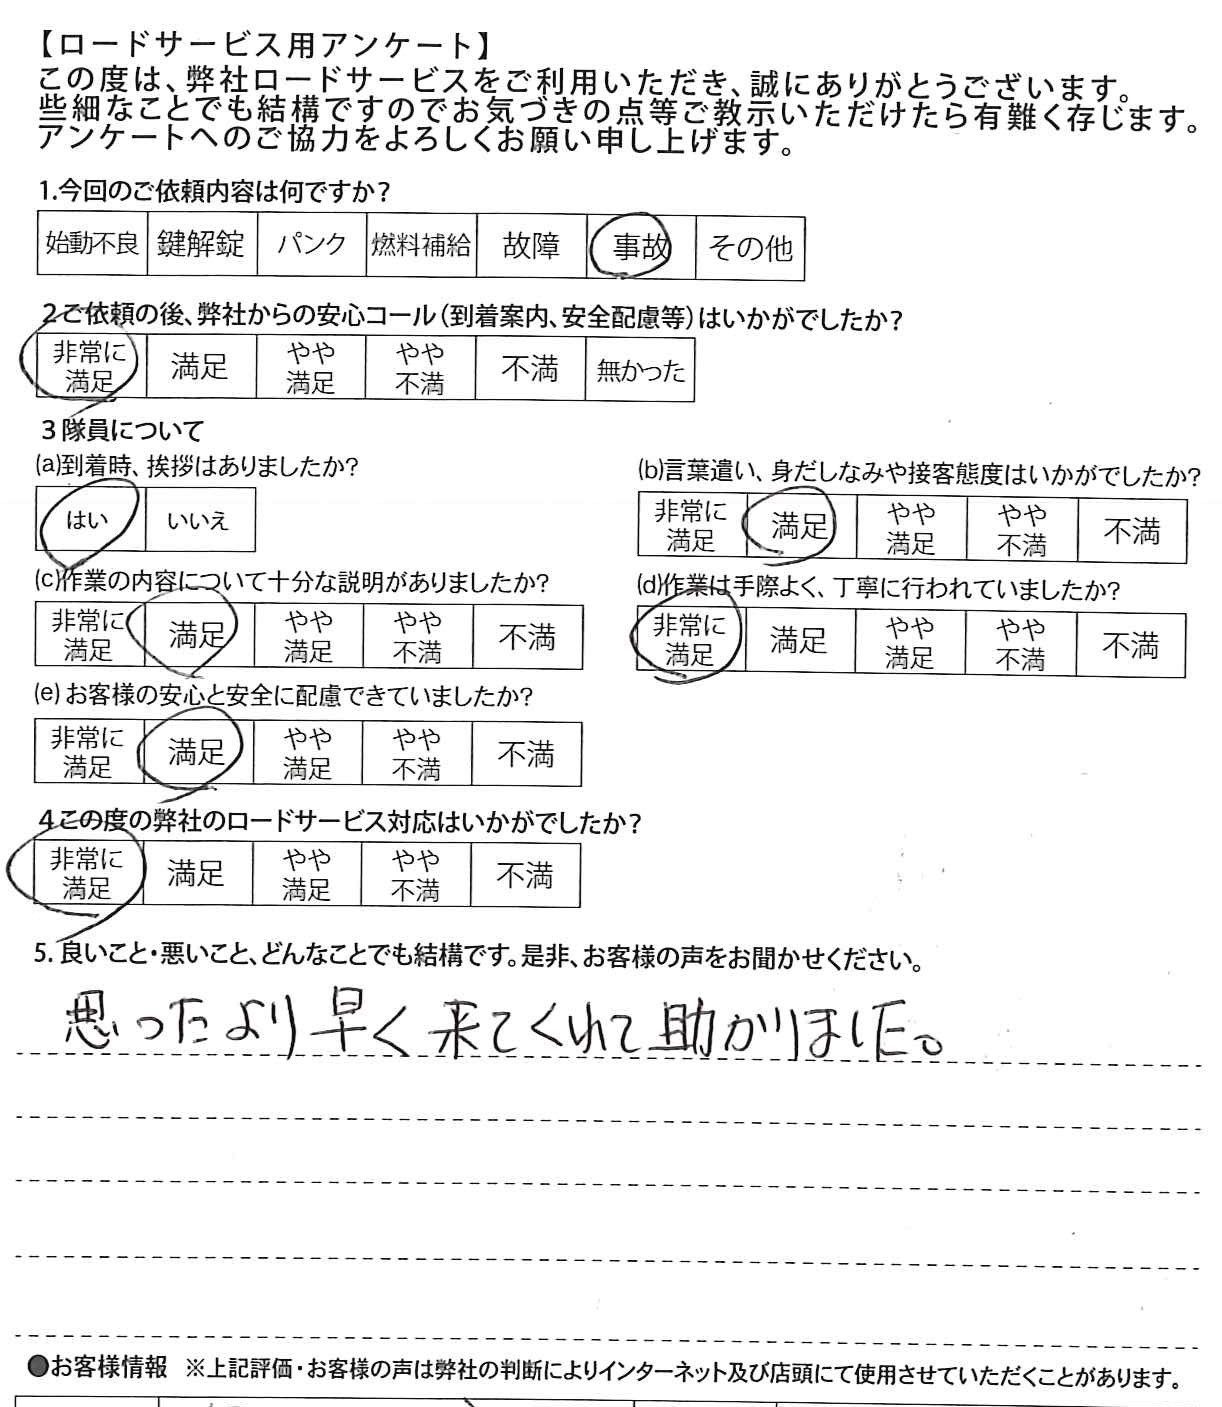 【ロードサービス用アンケート】
この度は、弊社ロードサービスをご利用いただき、誠にありがとうございます。
些細なことでも結構ですのでお気づきの点等ご教示いただけたら有難く存じます。
アンケートへのご協力をよろしくお願い申し上げます。
1.今回のご依頼内容は何ですか?
始動不良 鍵解錠 パンク 燃料補給 故障 事故 その他
2ご依頼の後、弊社からの安心コール(到着案内、安全配慮等)はいかがでしたか?
非常に満足 満足 やや満足 やや不満 不満 無かった
3隊員について
(a)到着時、挨拶はありましたか?
はい いいえ
(b)言葉遣い、身だしなみや接客態度はいかがでしたか?
非常に満足 満足 やや満足 やや不満 不満
(c)作業の内容について十分な説明がありましたか?
非常に満足 満足 やや満足 やや不満 不満
(d)作業は手際よく、丁寧に行われていましたか?
非常に満足 満足 やや満足 やや不満 不満
(e)お客様の安心と安全に配慮できていましたか?
非常に満足 満足 やや満足 やや不満 不満
4この度の弊社のロードサービス対応はいかがでしたか?
非常に満足 満足 やや満足 やや不満 不満
5.良いこと・悪いこと、どんなことでも結構です。是非、お客様の声をお聞かせください。
思ったより早く来てくれて助かりました。
●お客様情報 ※上記評価・お客様の声は弊社の判断によりインターネット及び店頭にて使用させていただくことがあります。